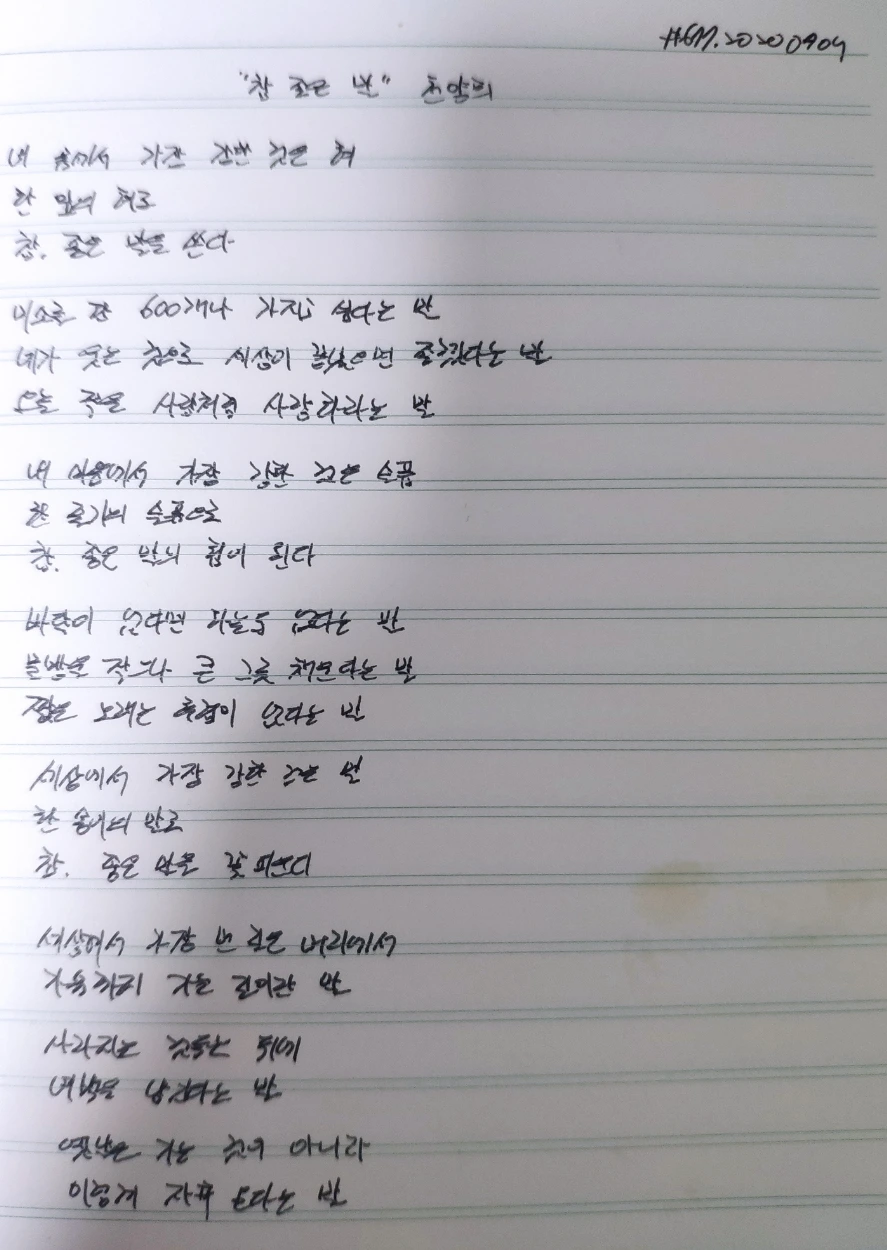 HGM.20200904
"참 좋은 말" 천양희
내 몸에서 가장 강한 것은 혀
한 잎의 혀로
참, 좋은 말을 쓴다
미소를 한 600개나 가지고 싶다는 말
네가 웃는 것으로 세상이 끝났으면 좋겠다는 말
오늘 죽을 사람처럼 사랑하라는 말
내 마음에서 가장 강한 것은 슬픔
한 줄기의 슬픔으로
참, 좋은 말의 힘이 된다
바닥이 없다면 하늘도 없다는 말
물방울 작으나 큰 그릇 채운다는 말
짧은 노래는 후렴이 없다는 말
세상에서 가장 강한 것은 말
한 송이의 말로
참, 좋은 말을 꽃 피운다
세상에서 가장 먼 길은 머리에서
가슴까지 가는 길이란 말
사라지는 것들은 뒤에
여백을 남긴다는 말
옛날은 가는 것이 아니라
이렇게 자꾸 온다는 말